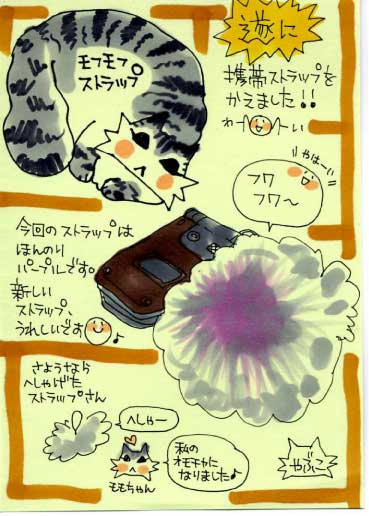 遂に
モフモフ
ストラップ
携帯ストラップを
かえました!!
わーい
やはー
フワ
フワ〜
今回のストラップは
ほんのり
パープルです。
新しい
ストラップ、
うれしいです♪
さようなら
へしゃげた
ストラップさん
へしゃー
ももちゃん
私の
オモチャに
なりました♪
やぶこ